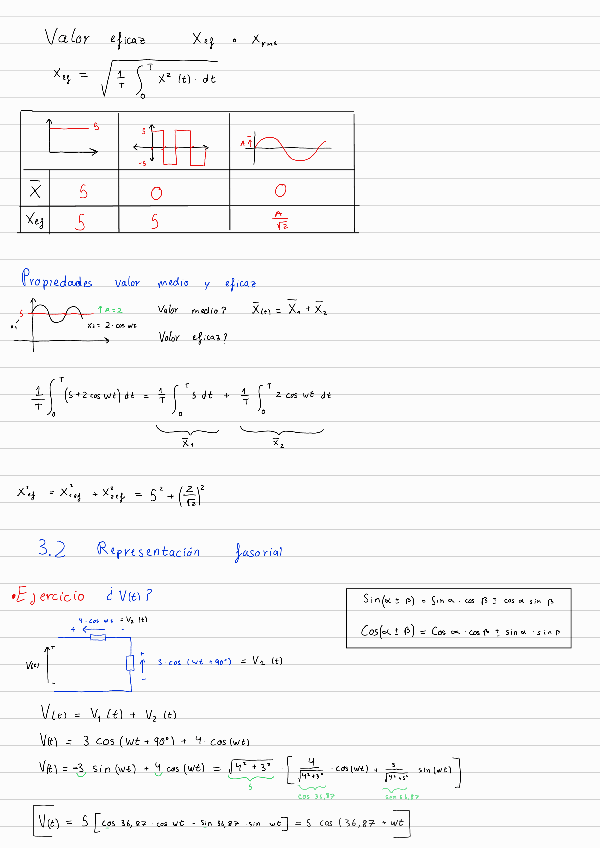 Valor eficaz Xef o Xrms
Xef = √(1/T ∫₀ᵀ X²(t) · dt)
5
5
-5
A
X̄ 5 0 0
Xef 5 5 A/√2
Propiedades valor medio y eficaz
5 ↑A=2
x₁ x₂ = 2 · cos wt
Valor medio? X̄(t) = X̄₁ + X̄₂
Valor eficaz?
1/T ∫₀ᵀ (5+2 cos wt) dt = 1/T ∫₀ᵀ 5 dt + 1/T ∫₀ᵀ 2 cos wt dt
X̄₁ X̄₂
X²ef = X₁²ef + X₂²ef = 5² + (2/√2)²
3.2 Representación fasorial
•Ejercicio ¿V(t)?
Sin(α ± β) = Sin α · cos β ± cos α sin β
Cos(α ± β) = Cos α · cos β ± sin α · sin β
4 · cos wt = V₂ (t)
+ -
V(t) + + 3 cos (wt + 90°) = V₁ (t)
- -
V(t) = V₁ (t) + V₂ (t)
V(t) = 3 cos (wt + 90°) + 4 · cos (wt)
V(t) = -3 sin (wt) + 4 cos (wt) = √(4² + 3²) [4/√(4²+3²) · cos(wt) + 3/√(4²+3²) sin (wt)]
5 cos 36,87 sin 36,87
V(t) = 5 [cos 36,87 · cos wt - sin 36,87 sin wt] = 5 cos (36,87 + wt